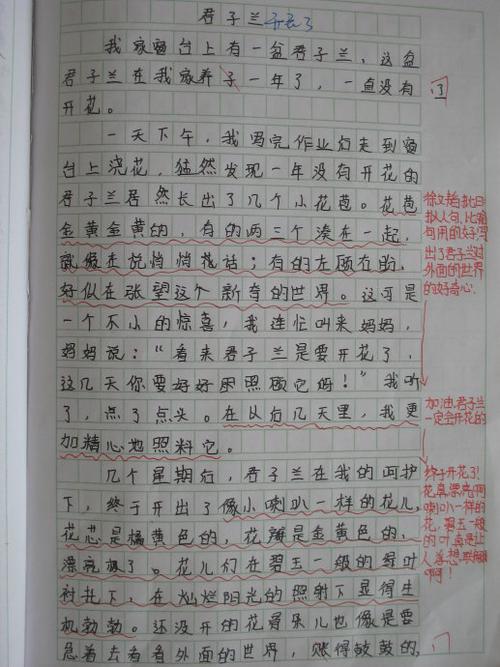 君子兰开花了
我家窗台上有一盆君子兰，这盆
君子兰在我家养子一年了，一直没有
了
开花。
一天下午，我写完作业后走到窗
台上浇花，猛然发现一年没有开花的
君子兰居然长出了几个小花苞。花苞
金黄金黄的，有的两三个凑在一起，
就像在说悄悄话；有的左顾右盼，
好似在张望这个新奇的世界。这可是
一个不小的惊喜，我连忙叫来妈妈，
妈妈说：“看来君子兰是要开花了，
这几天你要好好照顾它呀！”我听
了，点了点头。在以后几天里，我更
加精心地照料它。
几个星期后，君子兰在我的呵护
下，终于开出了像小喇叭一样的花儿，
花芯是橘黄色的，花瓣是金黄色的，
漂亮极了。花儿们在碧玉一般的绿叶
衬托下，在灿烂阳光的照射下显得生
机勃勃。还没开的花骨朵儿也像是要
急着去看看外面的世界，胀得鼓鼓的，
拟人句，比喻
句用的好，写
出了君子兰对
外面的世界
的好奇心。
加油，君子兰
一定会开花的
终于开花了！
花真漂亮啊
喇叭一样的
花，碧玉一般
的叶真是让
人
啊！